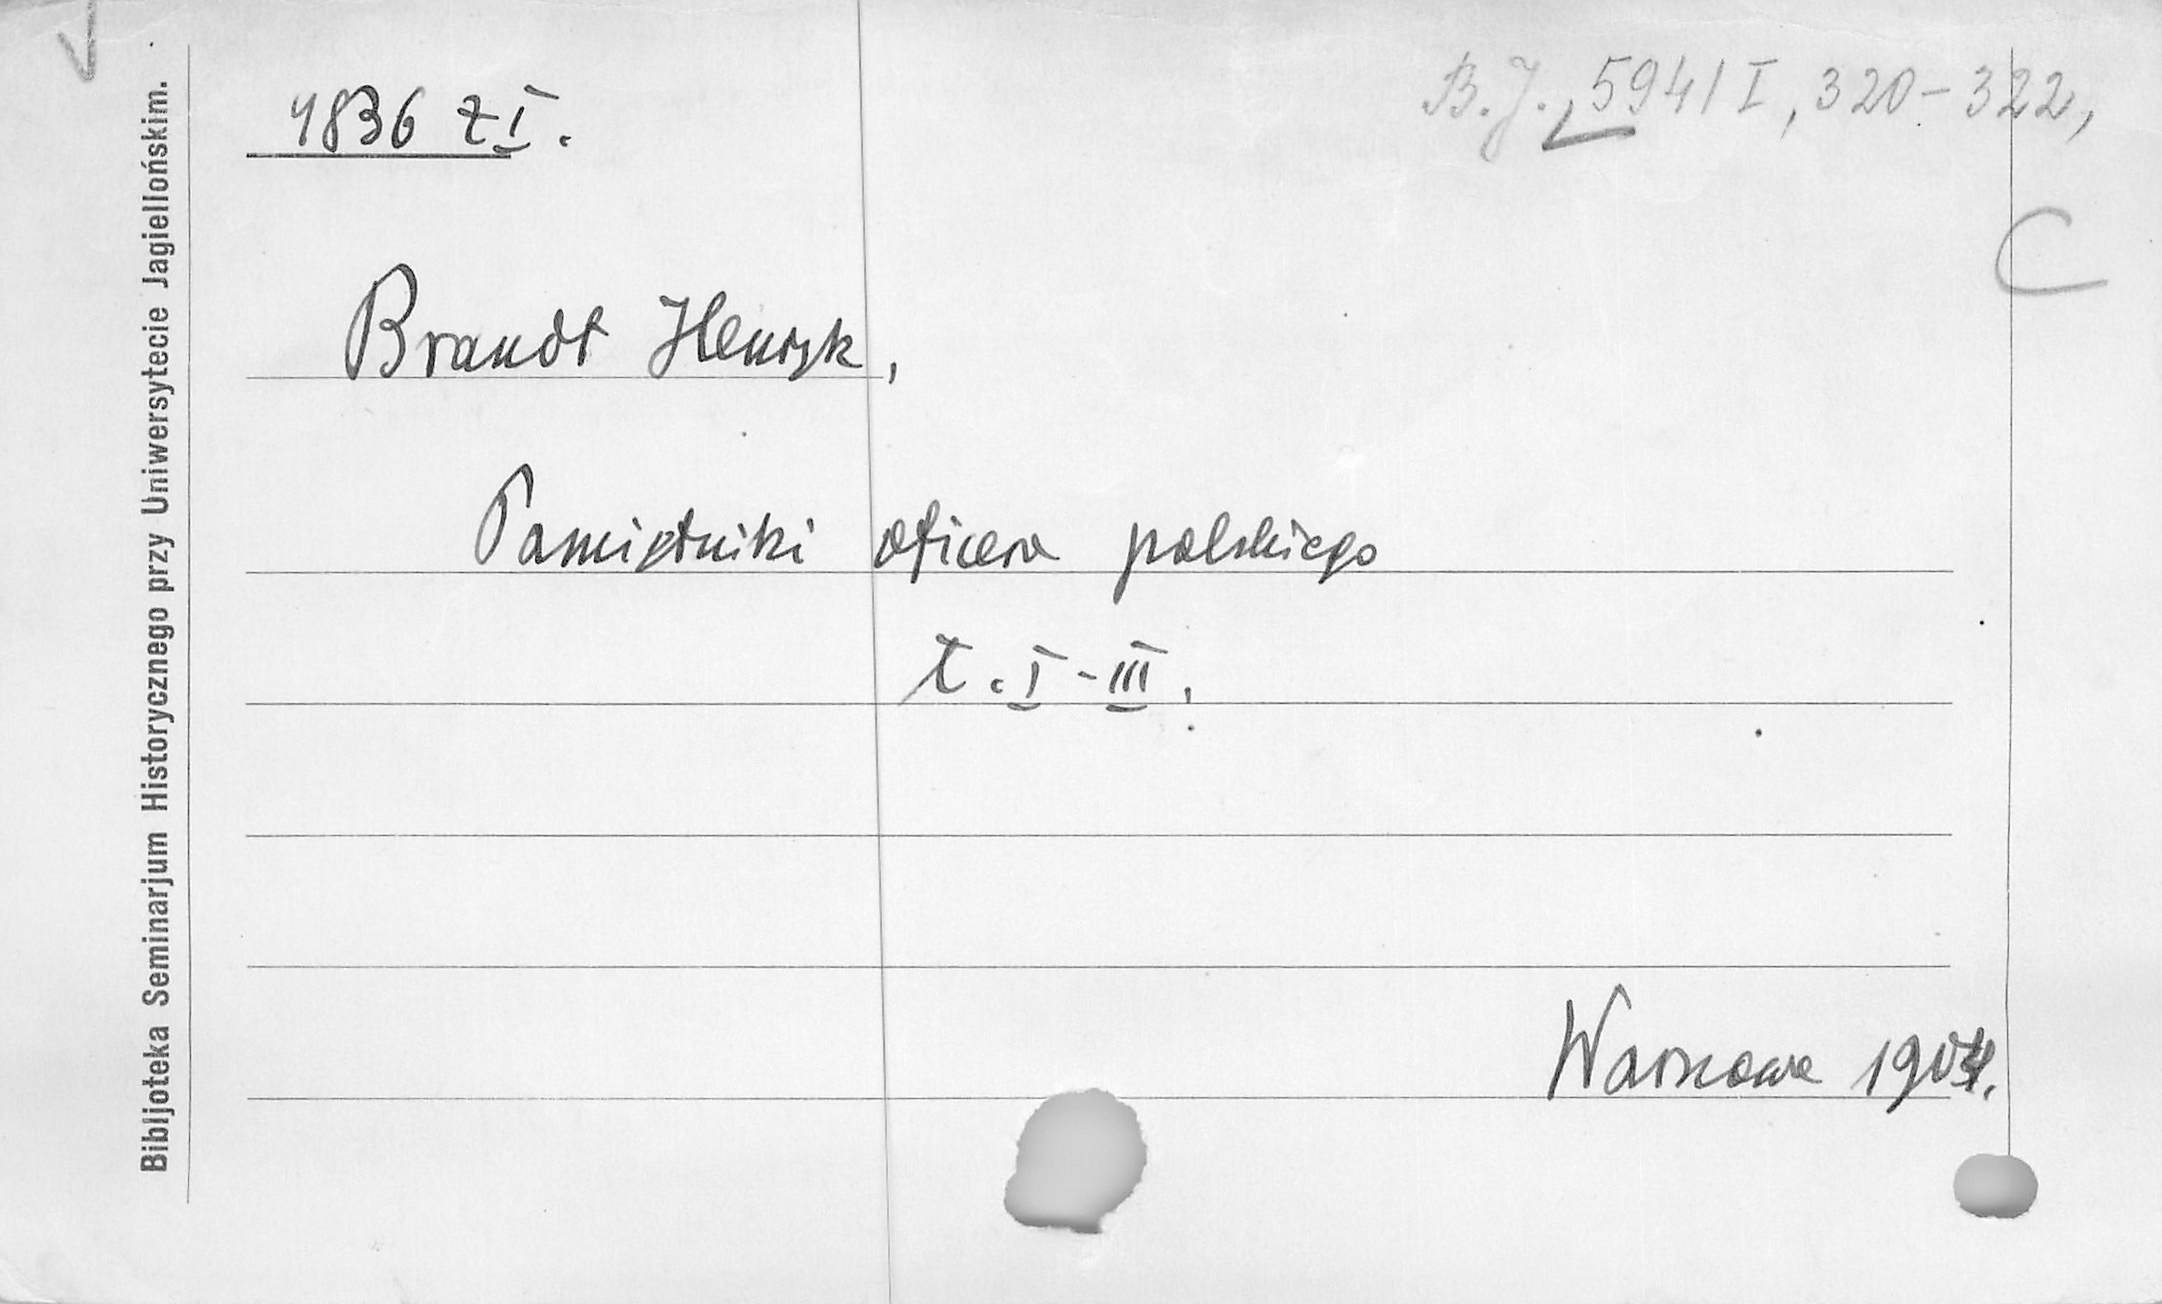 1836 z I.
B.J., 5941 I, 320-322,
C
Brandt Henryk,
Pamiętniki oficera polskiego
t. I-III.
Warszawa
Bibljoteka Seminarjum Historycznego przy Uniwersytecie Jagiellońskim.